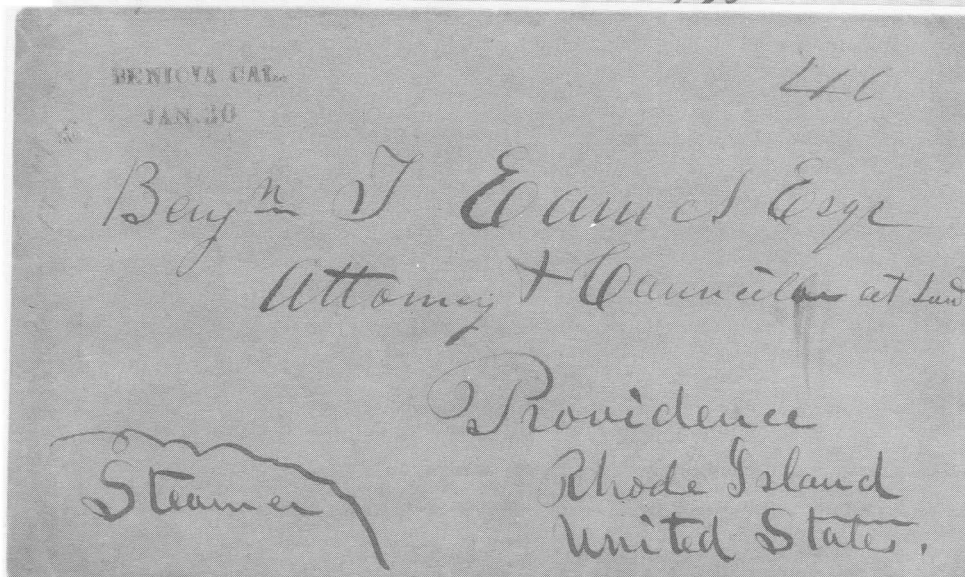 BENICIA CAL.
JAN. 30
40
Benjn T Eames Esqr
Attorney + Councilor at Law
Providence
Rhode Island
United States.
Steamer